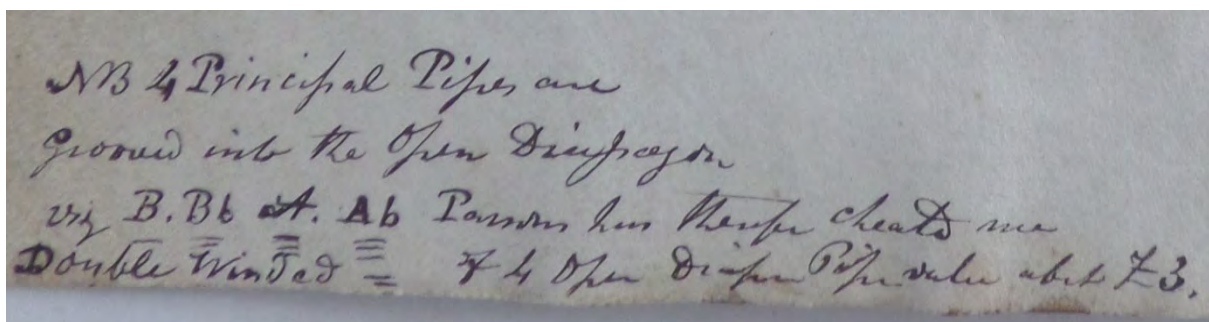 NB 4 Principal Pipes are
Grooved into the Open Diapason
viz B. Bb A. Ab Parsons has therefor cheatd me
Double Winded of 4 Open Diapn Pipes value abot £3.